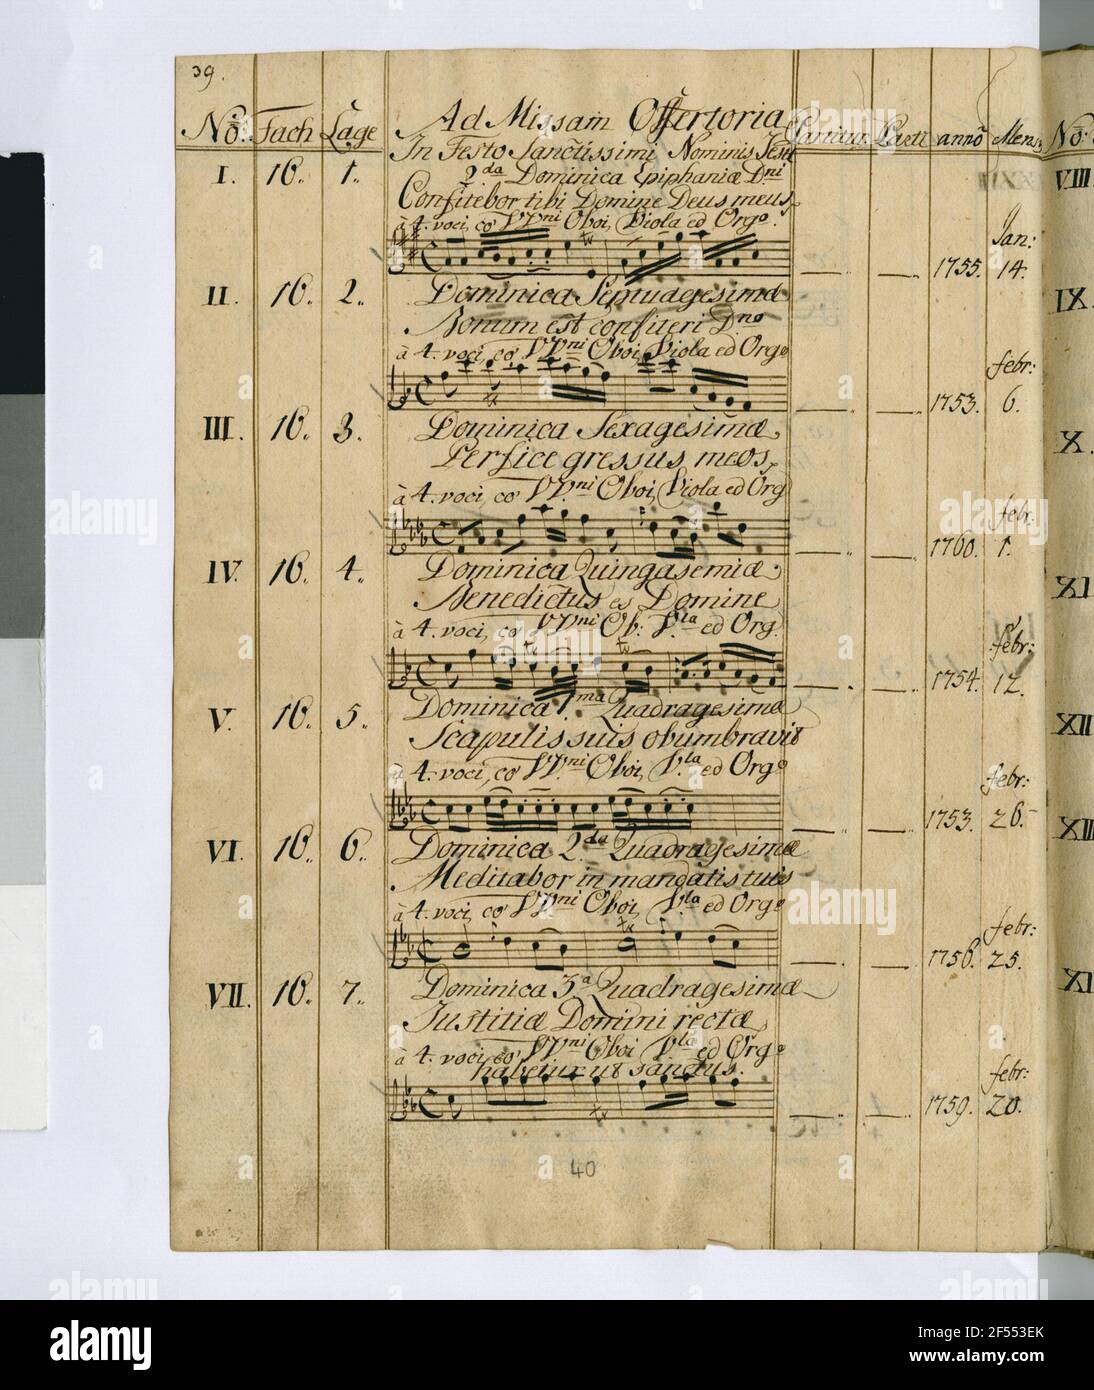 39.
No: Fach Lage Ad Missam Offertoria Partitur. Parti anno Mens: No:
In Festo Sanctissimi Nominis Jesu
I. 16. 1. 2da Dominica Epiphaniæ Dni VIII
Confitebor tibi Domine Deus meus
à 4. voci, co VVni Oboi, Viola ed Orgo.
Jan:
1755. 14.
II. 16. 2. Dominica Septuagesimæ IX.
Bonum est confiteri Dno
à 4. voci, co VVni Oboi, Viola ed Orgo
febr:
1753. 6.
III. 16. 3. Dominica Sexagesimæ X.
Perfice gressus meos,
à 4. voci, co VVni Oboi, Viola ed Org
febr:
1760. 1.
IV. 16. 4. Dominica Quingasemiæ XI
Benedictus es Domine
à 4. voci, co VVni Ob: Vla ed Org.
febr:
1754. 12.
V. 16. 5. Dominica 1ma Quadragesimæ XII
Scapulis suis obumbravit
à 4. voci, co VVni Oboi, Vla ed Orgo
febr:
1753. 26.
VI. 16. 6. Dominica 2da Quadragesimæ XIII
Meditabor in mandatis tuis
à 4. voci, co VVni Oboi, Vla ed Orgo
febr:
1756. 25.
VII. 16. 7. Dominica 3a Quadragesimæ XI
Iustitiæ Domini rectæ
à 4. voci, co VVni Oboi Vla ed Orgo
habetur ut sanctus.
febr:
1759. 20.
40
alamy
Image ID: 2F553EK
www.alamy.com